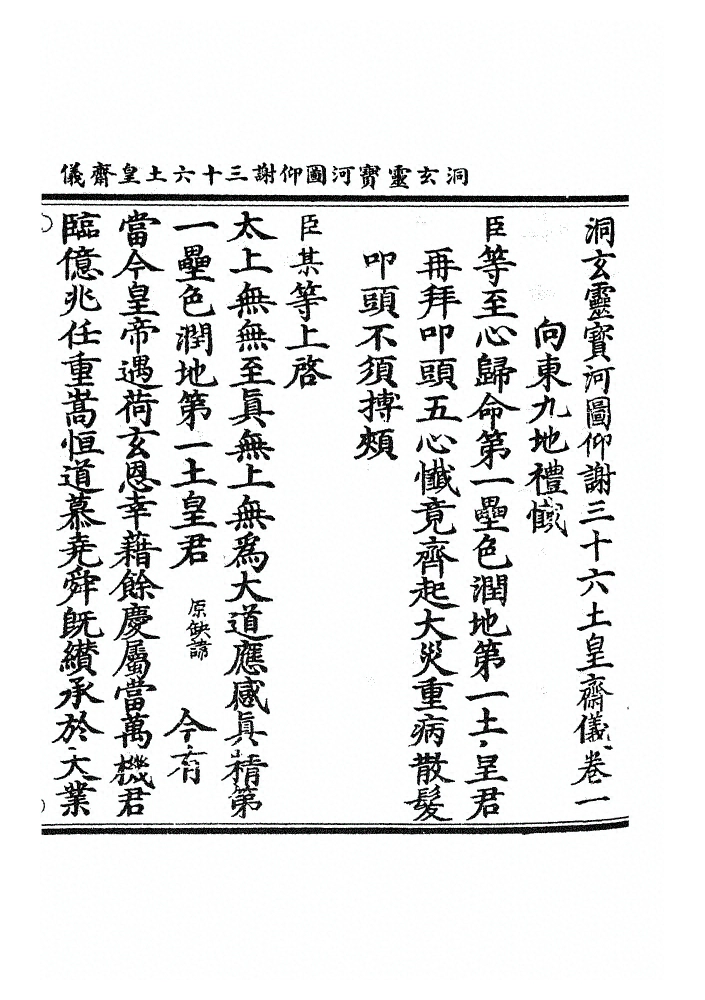 洞玄靈寳河圖仰謝三十六土皇齋儀
洞玄靈寳河圖仰謝三十六土皇齋儀卷一
向東九地禮懺
臣等至心歸命第一壘色潤地第一土皇君
再拜叩頭五心懺竟齊起大災重病散髮
叩頭不須搏頰
臣某等上啓
太上無無至眞無上無爲大道應感眞精第
一壘色潤地第一土皇君原缺諱今有
當今皇帝遇荷玄恩幸藉餘慶屬當萬機君
臨億兆任重嵩恒道慕堯舜旣纉承於大業